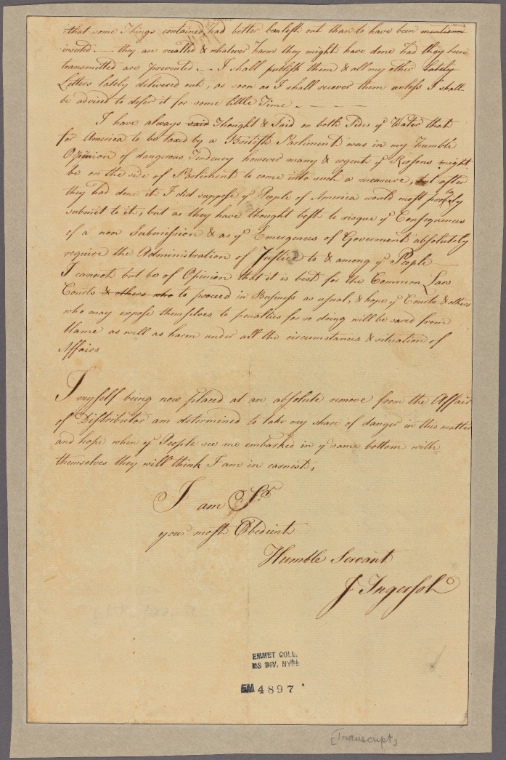 that some Things contained had better been left out than to have been mentioned
inserted — they are recalled & whatever harm they might have done had they been
transmitted are prevented — I shall publish them & all my other lately
Letters lately delivered out, as soon as I shall recover them unless I shall
be advised to defer it for some little Time — — — —
I have always said thought & said on both Sides ye Water that
for America to be taxed by a British Parliament was in my humble
Opinion of dangerous Tendency however many & urgent ye Reasons might
be on the side of Parliament to come into such a measure, but after
they had done it I did suppose ye People of America would most prudently
submit to it; but as they have thought best to risque ye Consequences
of a non Submission & as ye Emergencies of Government absolutely
require the Administration of Justice to & among ye People
I cannot but be of Opinion that it is best for the Common Law
Courts & others who to proceed in Business as usual, & hope ye Courts & others
who may expose themselves to penalties for so doing will be saved from
blame as well as harm under all the circumstances & situation of
Affairs
I myself being now placed at an absolute remove from the Affair
of Distributor am determined to take my share of danger in this matter
and hope when ye People see me embarked in ye same bottom with
themselves they will think I am in earnest,
I am Sr
your most Obedient
Humble Servant
J Ingersoll
EMMET COLL.
MS DIV. NYPL
EM 4897
(Transcript)